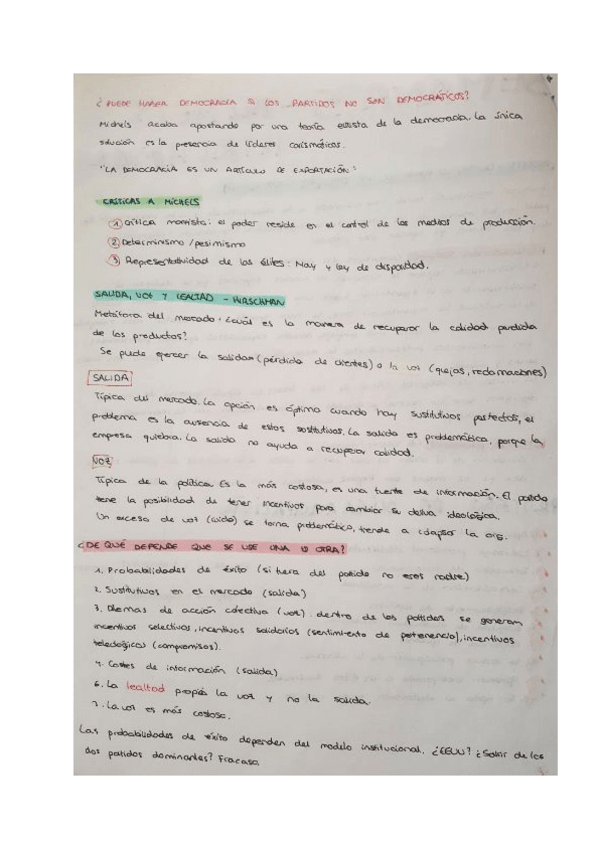 ¿PUEDE HABER DEMOCRACIA SI LOS PARTIDOS NO SON DEMOCRÁTICOS?
Michels acaba apostando por una teoría elitista de la democracia. La única
solución es la presencia de líderes carismáticos.
"LA DEMOCRACIA ES UN ARTÍCULO DE EXPORTACIÓN"
CRÍTICAS A MICHELS
1 Crítica marxista: el poder reside en el control de los medios de producción.
2 Determinismo / pesimismo
3 Representatividad de las élites: May y ley de disparidad.
SALIDA, VOZ Y LEALTAD - HIRSCHMAN
Metáfora del mercado: ¿cuál es la manera de recuperar la calidad perdida
de los productos?
Se puede ejercer la salida (pérdida de clientes) o la voz (quejas, reclamaciones)
SALIDA
Típica del mercado. La opción es óptima cuando hay sustitutivos perfectos, el
problema es la ausencia de estos sustitutivos. La salida es problemática, porque la
empresa quiebra. La salida no ayuda a recuperar calidad.
VOZ
Típica de la política. Es la más costosa, es una fuente de información. El partido
tiene la posibilidad de tener incentivos para cambiar su deriva ideológica.
Un exceso de voz (ruido) se torna problemático, tiende a colapsar la org.
¿DE QUÉ DEPENDE QUE SE USE UNA U OTRA?
1. Probabilidades de éxito (si fuera del partido no eres nadie)
2. Sustitutivos en el mercado (salida)
3. Dilemas de acción colectiva (voz). dentro de los partidos se generan
incentivos selectivos, incentivos solidarios (sentimiento de pertenencia), incentivos
teleológicos (compromisos).
4. Costes de información (salida)
6. La lealtad propicia la voz y no la salida.
7. La voz es más costosa.
Las probabilidades de éxito dependen del modelo institucional. ¿EEUU? ¿Salir de los
dos partidos dominantes? Fracaso.